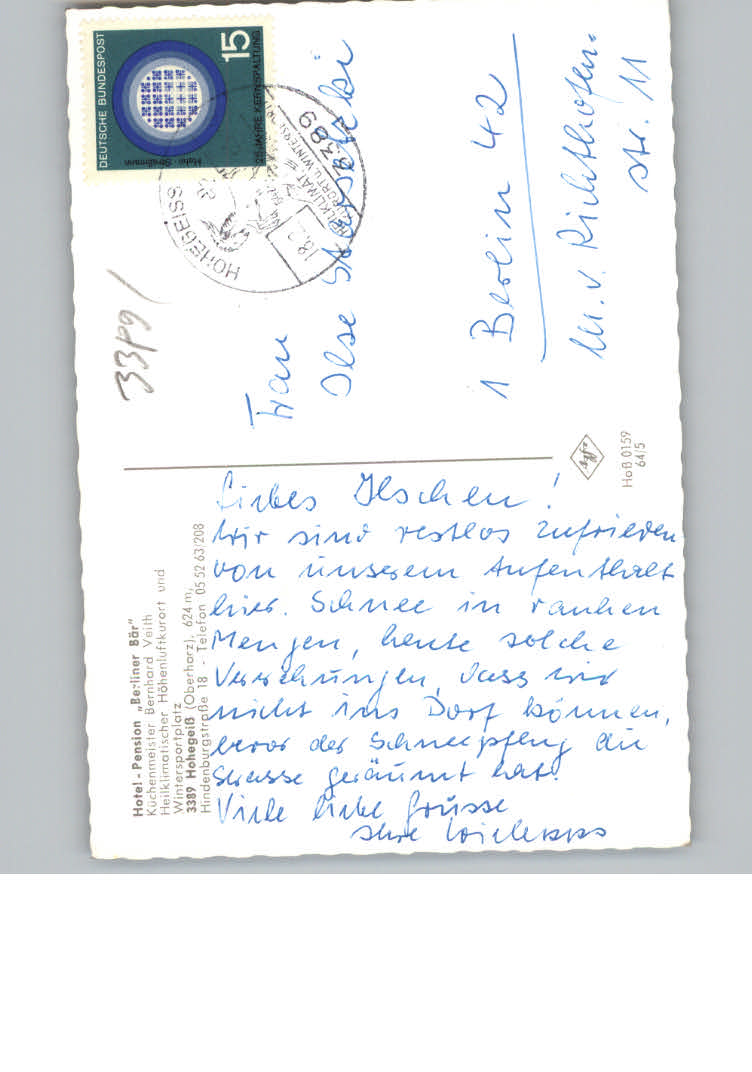 Hotel - Pension „Berliner Bär"
Küchenmeister Bernhard Veith
Heilklimatischer Höhenluftkurort und
Wintersportplatz
3389 Hohegeiß (Oberharz), 624 m,
Hindenburgstraße 18 - Telefon 05 52 63/208
Liebes Ilschen!
Wir sind restlos zufrieden
von unserem Aufenthalt
hier. Schnee in rauhen
Mengen, heute solche
Verwehungen, dass wir
nicht ins Dorf können,
bevor der Schneepflug die
Strasse geräumt hat.
Viele liebe Grüsse
Ihre
DEUTSCHE BUNDESPOST
15
25 JAHRE KERNSPALTUNG
Hahn Straßmann
HOHEGEISS
3389
HEILKLIMAT.
KURORT U. WINTERSP
18.
33pg/
Frau
Ilse
1 Berlin 42
M. v. Richthofen-
str. 11
Agfa
HoB 0159
64/5